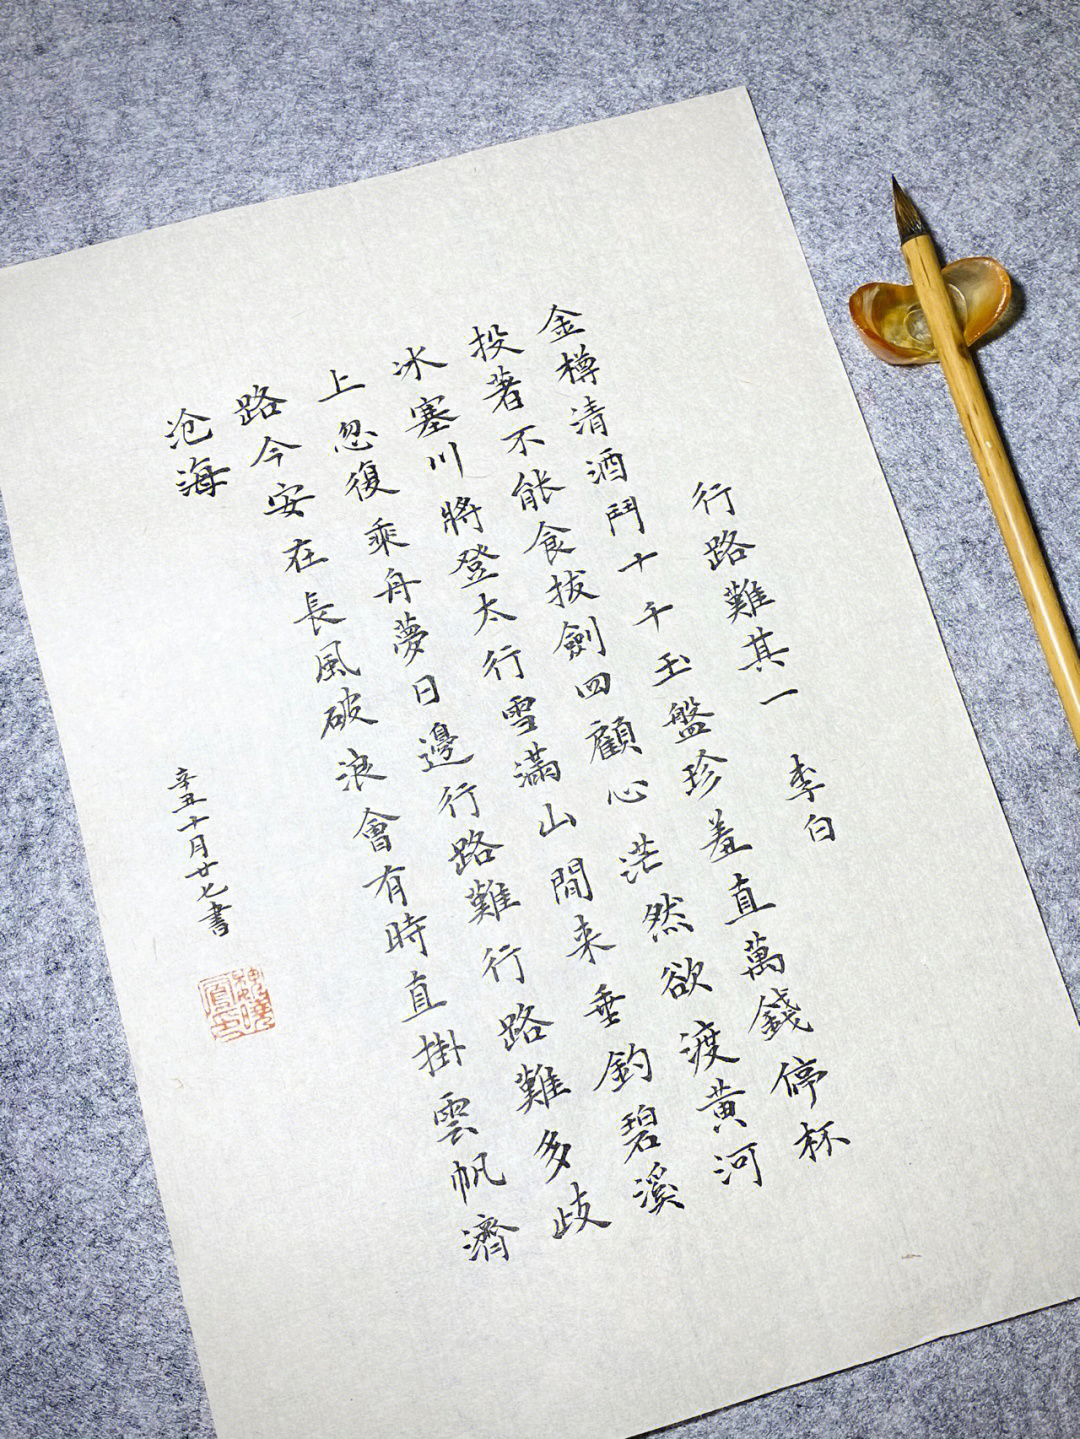 行路難其一 李白
金樽清酒鬥十千玉盤珍羞直萬錢停杯
投著不能食拔劍四顧心茫然欲渡黄河
冰塞川將登太行雪滿山閒来垂釣碧溪
上忽復乘舟夢日邊行路難行路難多歧
路今安在長風破浪會有時直掛雲帆濟
沧海
辛丑十月廿七書